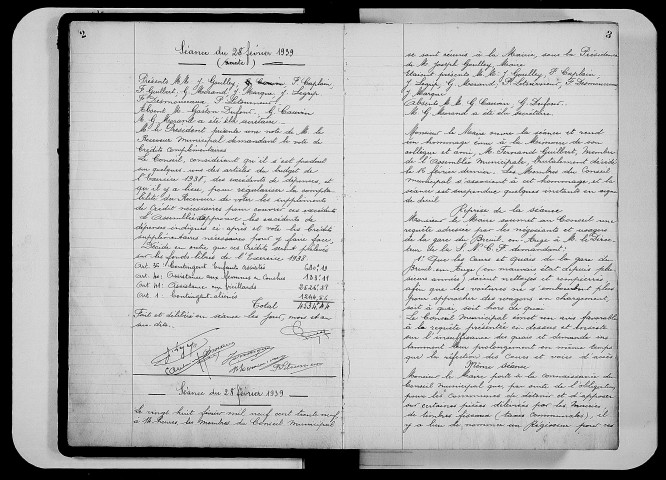 2
Séance du 28 février 1939
(suite)
Présents M.M. J. Goulley, G. Cauvin, F. Caplain,
F. Guilbert, G. Morand, J. Marque, J. Legrip
F. Desmonceaux P. Letonnurier
Absent M. Gaston Dufont, G. Cauvin
M. G. Morand a été élu secrétaire.
M. le Président présente une note de M. le
Receveur Municipal demandant le vote de
Crédits complémentaires
Le Conseil, considérant qu'il s'est produit
sur quelques uns des articles du budget de
l'Exercice 1938, des excédents de dépenses, et
qu'il y a lieu, pour régulariser la compta-
bilité du Receveur de voter les suppléments
de Crédit nécessaires pour couvrir ces excédents
L'Assemblée approuve les excédents de
dépenses indiqués ci après et vote les Crédits
supplémentaires nécessaires pour y faire face.
Décide en outre que ces Crédits seront prélevés
sur les fonds libres de l'Exercice 1938.
Art. Contingent enfants assistés
Art. 40: Assistance aux femmes en couches
Art. 41: Assistance aux vieillards
Art. 1 Contingent aliénés
Total
Fait et délibéré en séance les jour, mois et an
sus-dits.
Séance du 28 février 1939
Le vingt huit février mil neuf cent trente neuf
à heures, les membres du Conseil Municipal
3
se sont réunis à la Mairie, sous la Présidence
de M. Joseph Goulley, Maire
Etaient présents M.M. J. Goulley, F. Caplain
J. Legrip, G. Morand, P. Letonnurier, F. Desmonceaux
J. Marque
Absents M. G. Cauvin, G. Dufont.
M. G. Morand a été élu secrétaire.
Monsieur le Maire ouvre la séance et rend
un hommage ému à la Mémoire de son
collègue et ami, M. Fernand Guilbert, Membre
de l'Assemblée Municipale, brutalement décédé
le 16 février dernier. Les Membres du Conseil
municipal s'associent à cet hommage et la
séance est suspendue quelques instants en signe
de deuil
Reprise de la séance
Monsieur le Maire soumet au Conseil une
requête adressée par les négociants et usagers
de la gare du Breuil-en-Auge à M. le Direc-
teur de la S.N.C.F. demandant:
1° Que les Cours et Quais de la gare du
Breuil-en-Auge (en mauvais état depuis plu-
sieurs années) soient nettoyés et rempierrés
afin que les voitures ne s'embourbent plus
pour approcher des wagons en chargement,
soit à quai, soit hors de quai
Le Conseil Municipal émet un avis favorable
à la requête présentée ci dessus et insiste
sur l'insuffisance du quai et demande ins-
tamment leur prolongement en même temps
que la réfection des Cours et voies d'accès
Même séance
Monsieur le Maire porte à la connaissance du
Conseil Municipal que, par suite de l'obligation
pour les communes de détenir et d'apposer
sur certaines pièces délivrées par les mairies
de timbres fiscaux (taxes communales), il
y a lieu de nommer un Régisseur pour ces